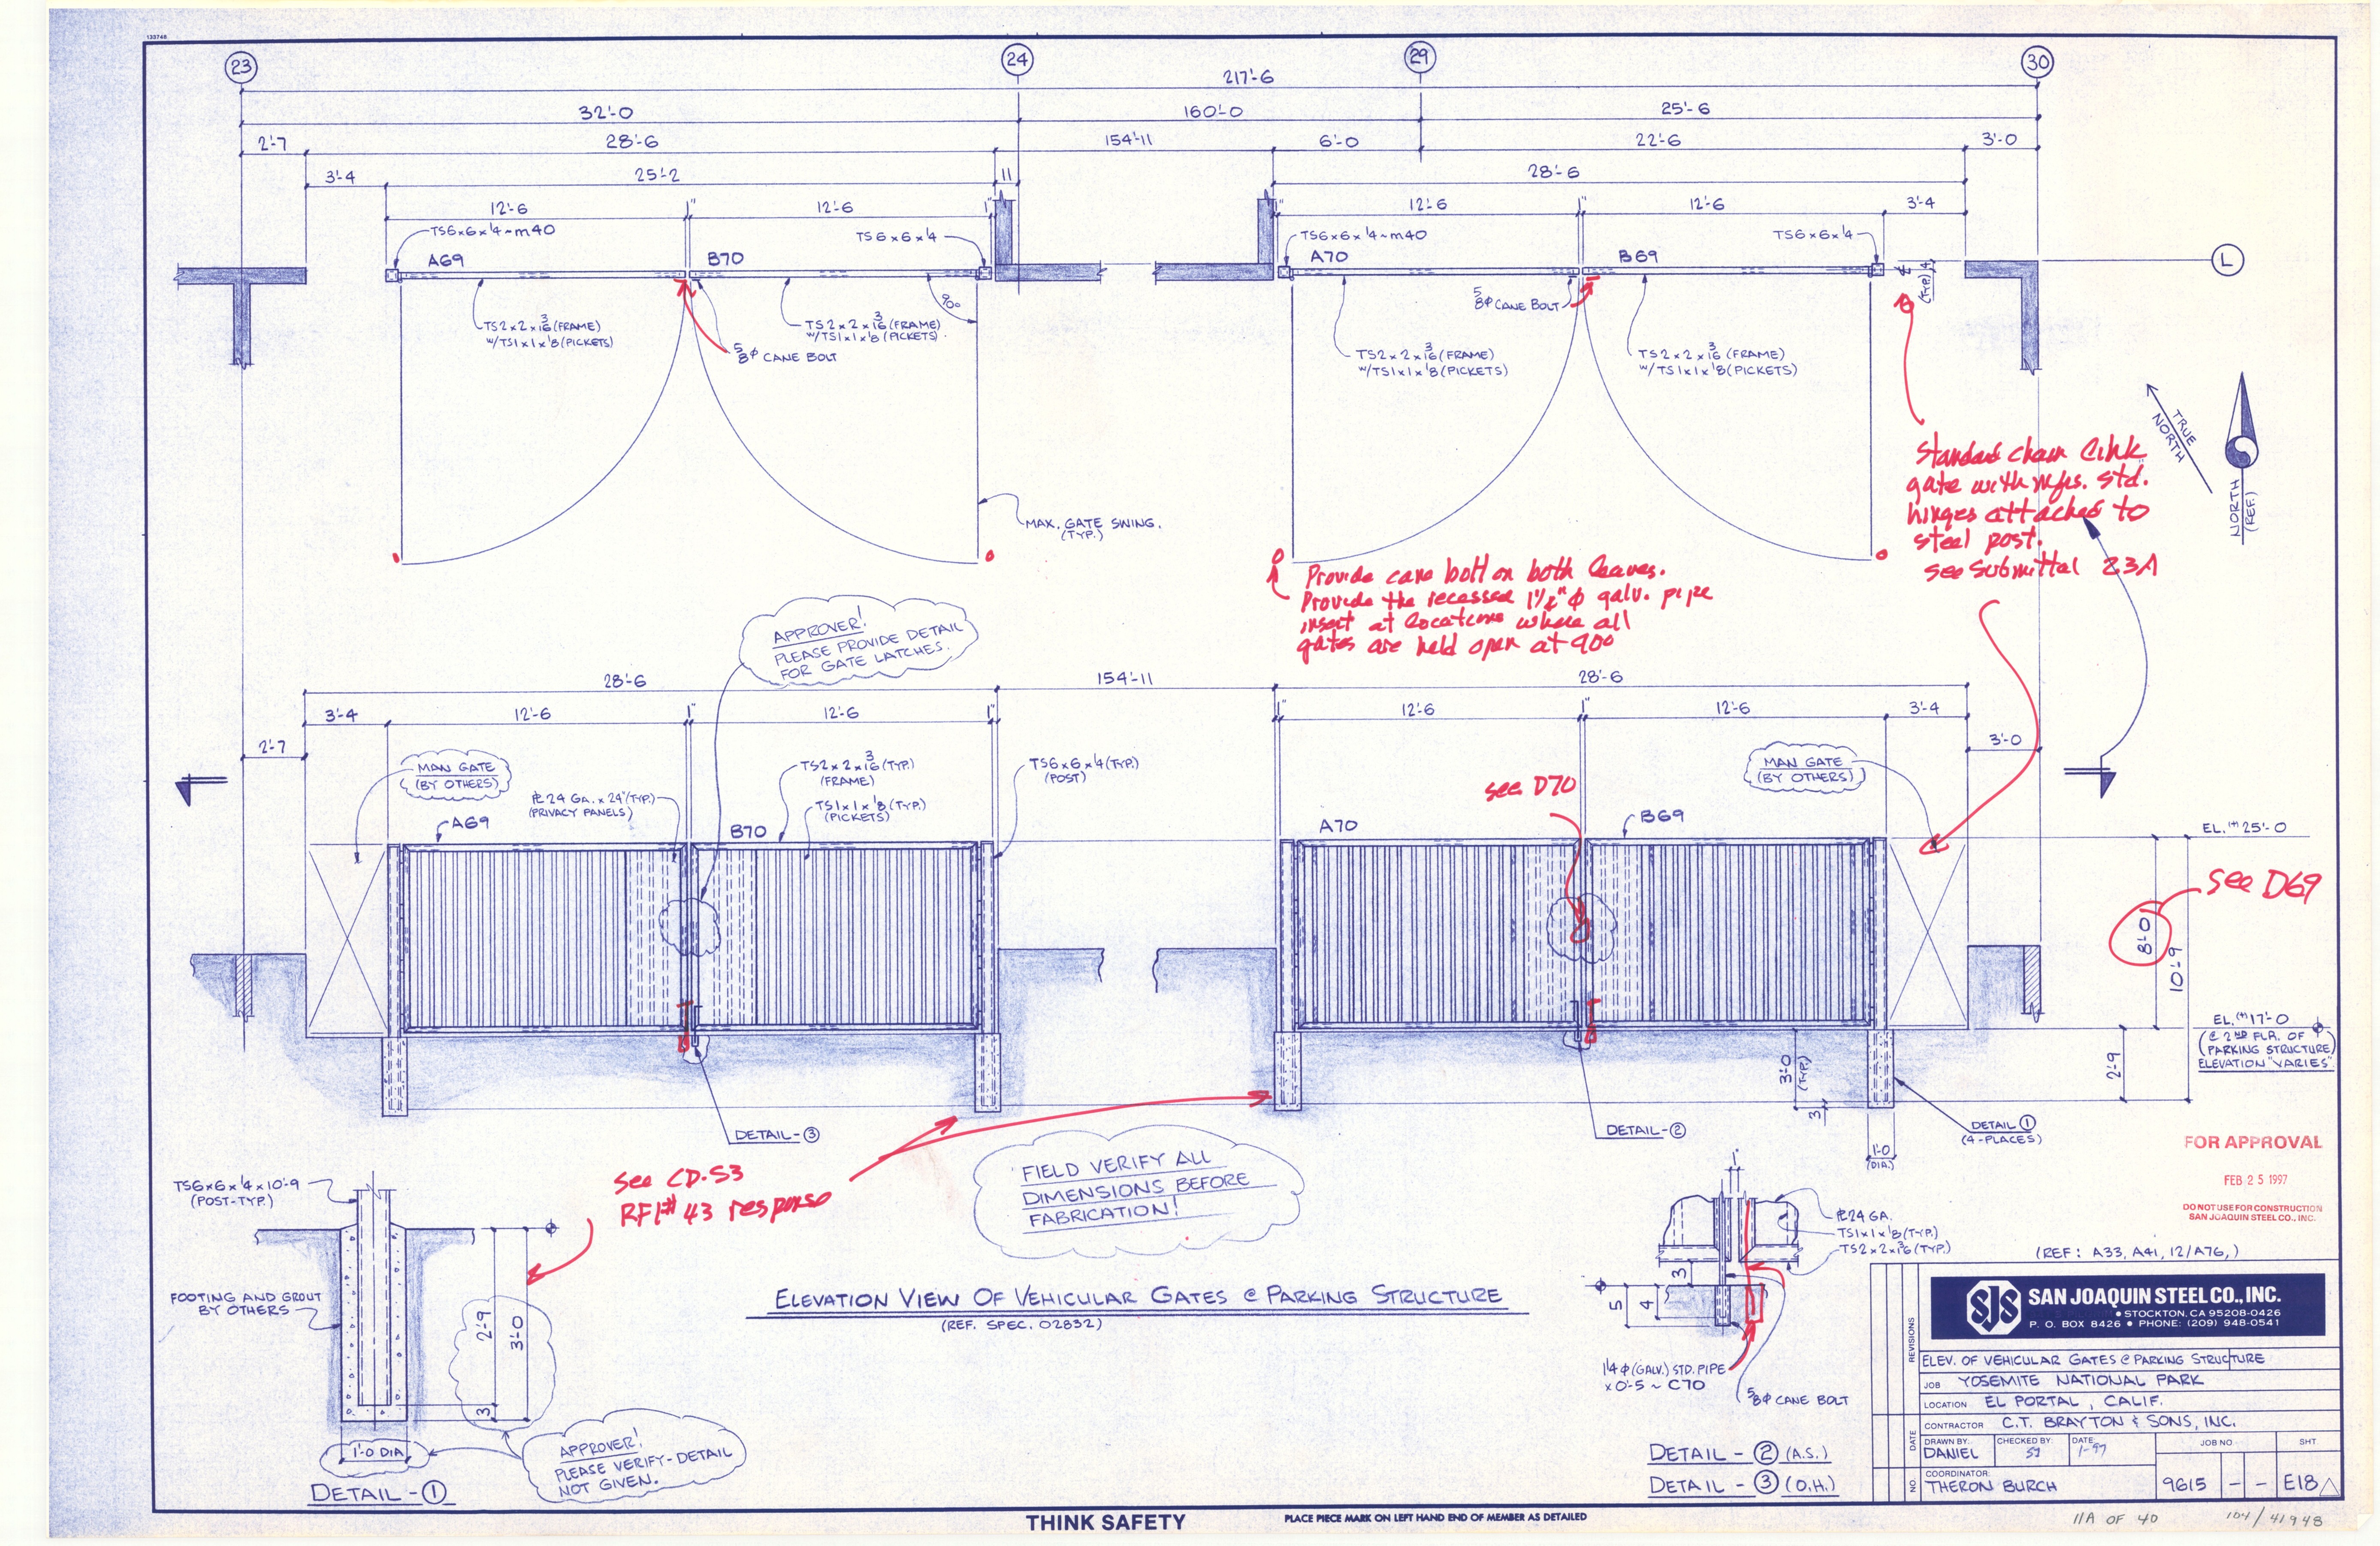 133748
23
24
29
30
217'-6
32'-0
160'-0
25'-6
2'-7
28'-6
154'-11
6'-0
22'-6
3'-0
3'-4
25'-2
11
28'-6
12'-6
1"
12'-6
1"
1"
12'-6
1"
12'-6
3'-4
TS6x6x¼~m40
TS6x6x¼
TS6x6x¼~m40
TS6x6x¼
A69
B70
A70
B69
L
₵
4
(TYP.)
TS2x2x3/16 (FRAME)
W/TS1x1x⅛ (PICKETS)
TS2x2x3/16 (FRAME)
W/TS1x1x⅛ (PICKETS).
90°
⅝φ CANE BOLT
⅝φ CANE BOLT
TS2x2x3/16 (FRAME)
W/TS1x1x⅛ (PICKETS)
TS2x2x3/16 (FRAME)
W/TS1x1x⅛ (PICKETS)
TRUE
NORTH
NORTH
(REF.)
Standard chain link
gate with mfrs. std.
hinges attached to
steel post.
see Submittal 23A
MAX. GATE SWING.
(TYP.)
Provide cane bolt on both leaves.
Provide the recessed 1½"φ galv. pipe
insert at locations where all
gates are held open at 90°
APPROVER!
PLEASE PROVIDE DETAIL
FOR GATE LATCHES.
28'-6
154'-11
28'-6
3'-4
12'-6
1"
12'-6
1"
1"
12'-6
1"
12'-6
3'-4
2'-7
3'-0
MAN GATE
(BY OTHERS)
℄ 24 GA. x 24"(TYP.)
(PRIVACY PANELS)
TS2x2x3/16 (TYP.)
(FRAME)
TS1x1x⅛ (TYP.)
(PICKETS)
TS6x6x¼ (TYP.)
(POST)
see D70
MAN GATE
(BY OTHERS)
A69
B70
A70
B69
EL. (+) 25'-0
see D69
8'-0
10'-9
EL. (+) 17'-0
(@ 2ND FLR. OF
PARKING STRUCTURE)
ELEVATION "VARIES"
2'-9
3'-0
(TYP.)
3
1'-0
(DIA.)
DETAIL-③
DETAIL-②
DETAIL ①
(4-PLACES)
FOR APPROVAL
FEB 25 1997
DO NOT USE FOR CONSTRUCTION
SAN JOAQUIN STEEL CO., INC.
See CD-S3
RFI# 43 response
FIELD VERIFY ALL
DIMENSIONS BEFORE
FABRICATION!
TS6x6x¼x10'-9
(POST-TYP.)
FOOTING AND GROUT
BY OTHERS
2'-9
3'-0
3
1'-0 DIA
APPROVER!
PLEASE VERIFY-DETAIL
NOT GIVEN.
DETAIL-①
ELEVATION VIEW OF VEHICULAR GATES @ PARKING STRUCTURE
(REF. SPEC. 02832)
1"
℄ 24 GA.
TS1x1x⅛ (TYP.)
TS2x2x3/16 (TYP.)
3
5
4
1¼φ (GALV.) STD. PIPE
x 0'-5 ~ C70
⅝φ CANE BOLT
DETAIL-② (A.S.)
DETAIL-③ (O.H.)
(REF: A33, A41, 12/A76,)
SJS
SAN JOAQUIN STEEL CO., INC.
• STOCKTON, CA 95208-0426
P. O. BOX 8426 • PHONE: (209) 948-0541
REVISIONS
DATE
NO.
ELEV. OF VEHICULAR GATES @ PARKING STRUCTURE
JOB YOSEMITE NATIONAL PARK
LOCATION EL PORTAL, CALIF.
CONTRACTOR C.T. BRAYTON & SONS, INC.
DRAWN BY: DANIEL
CHECKED BY:
DATE: 1-97
JOB NO.
SHT
COORDINATOR: THERON BURCH
9615
-
-
E18
THINK SAFETY
PLACE PIECE MARK ON LEFT HAND END OF MEMBER AS DETAILED
11A OF 40
104/41948